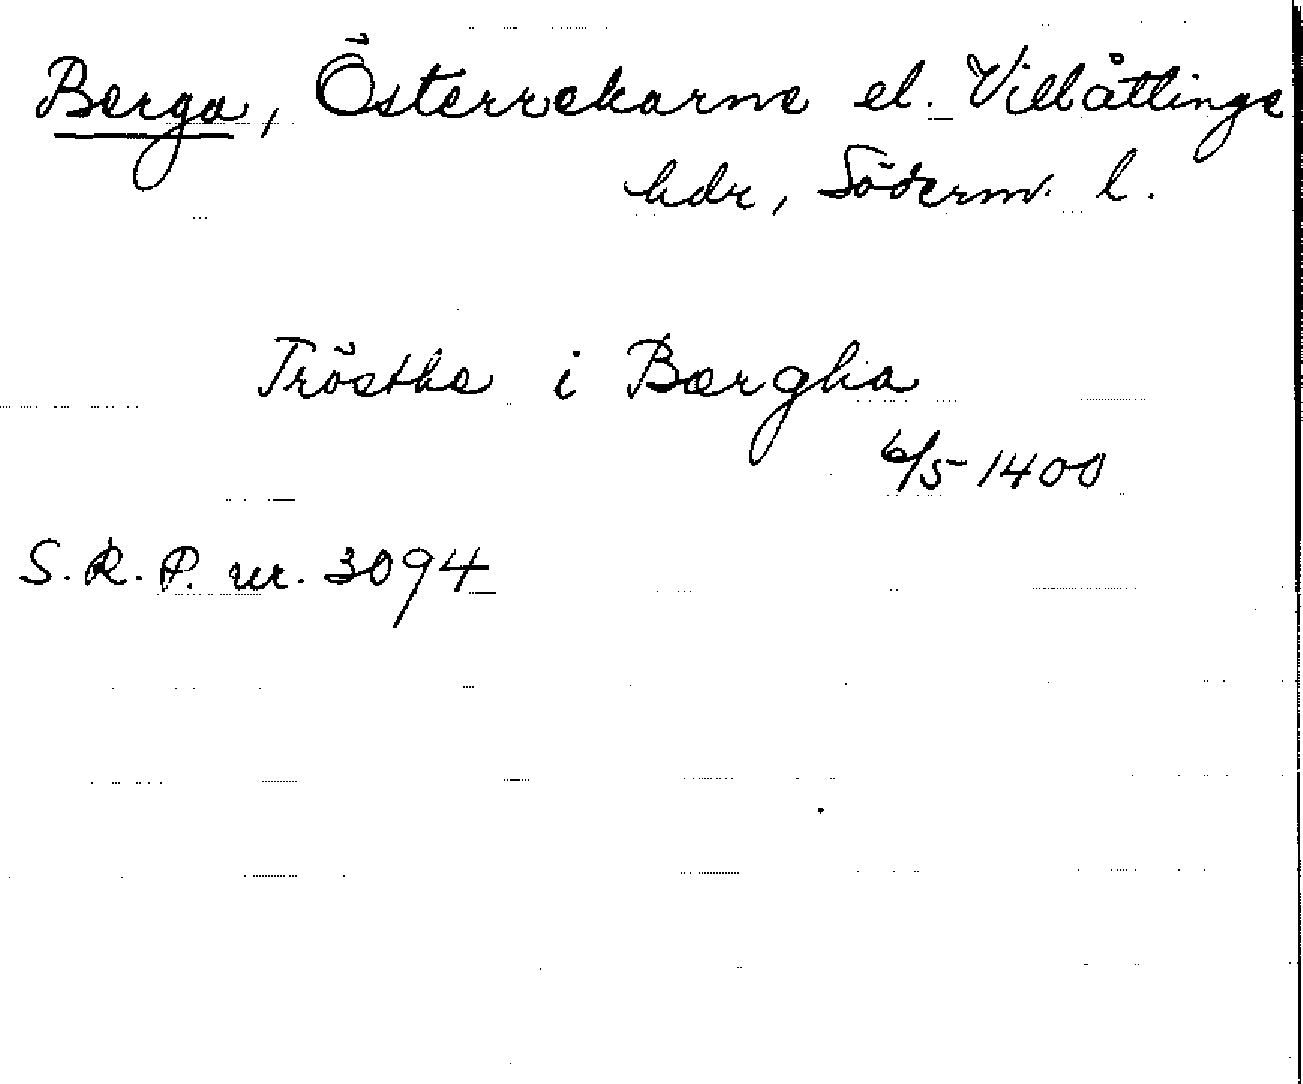 Berga, Österrekarne el. Villåttinge
hdr, Söderm. l.
Trösthe i Bærgha
6/5 1400
S.R.P. nr. 3094